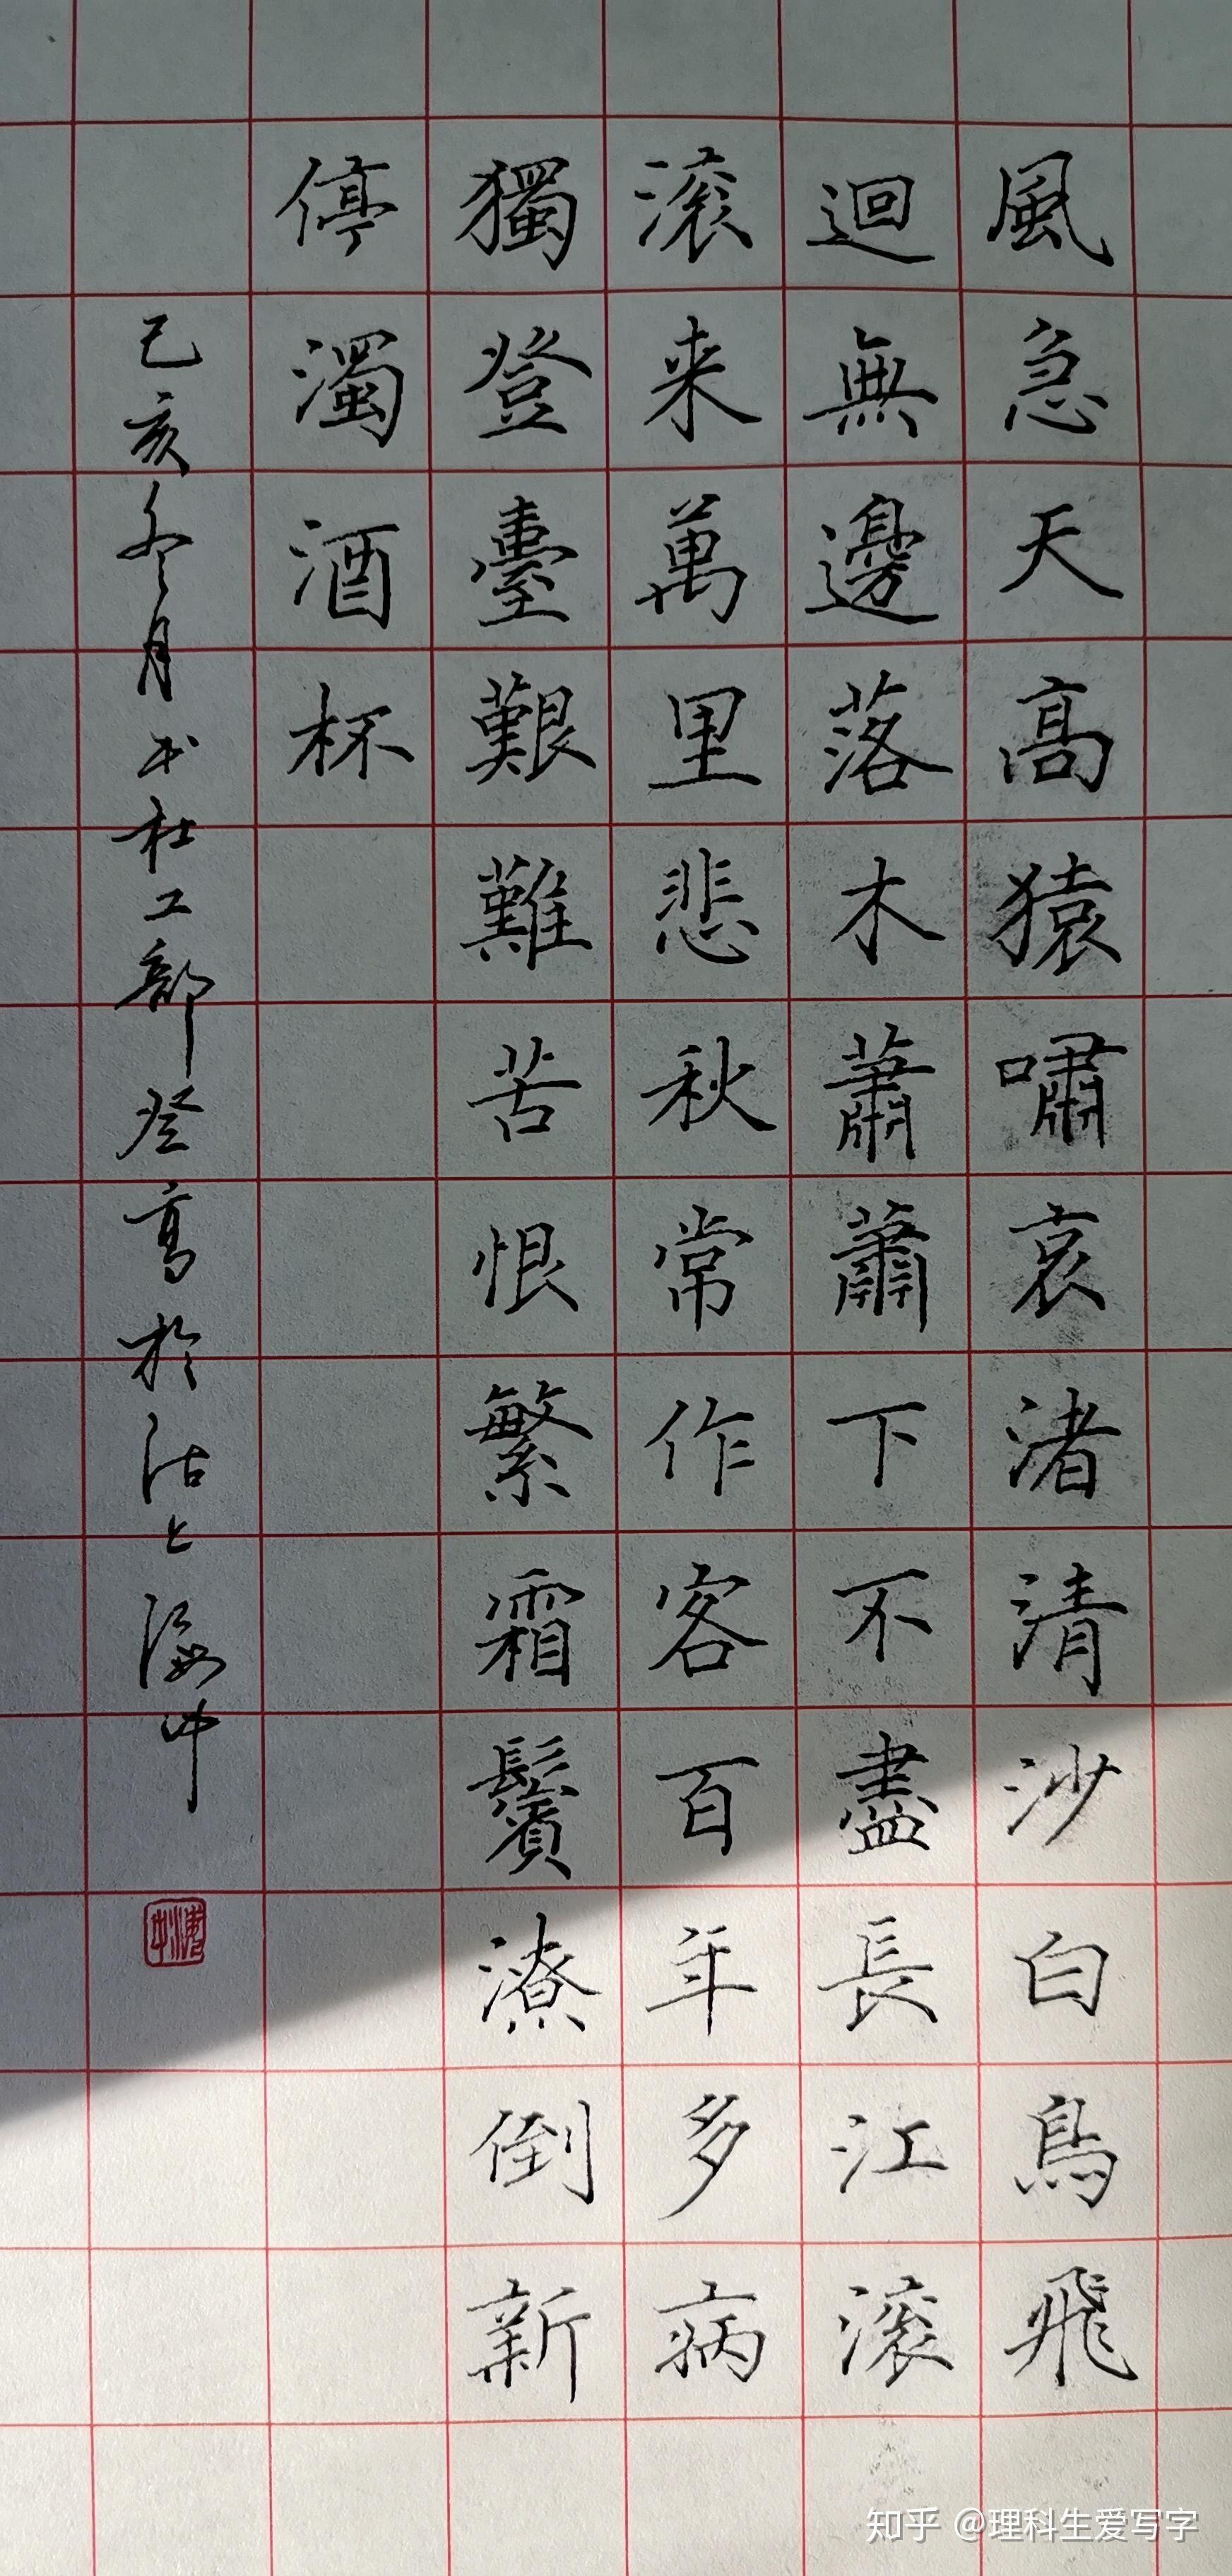 風急天高猿嘯哀渚清沙白鳥飛
迴無邊落木蕭蕭下不盡長江滚
滚来萬里悲秋常作客百年多病
獨登臺艱難苦恨繁霜鬢潦倒新
停濁酒杯
己亥冬月书杜工部登高於沽上海中
海中
知乎 @理科生爱写字